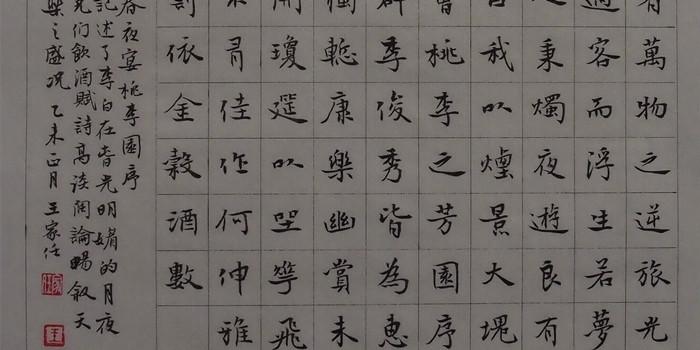 者萬物之逆旅光
過客而浮生若夢
人秉燭夜遊良有
召我以煙景大塊
會桃李之芳園序
群季俊秀皆為惠
獨慚康樂幽賞未
開瓊筵以坐華飛
不有佳作何伸雅
罰依金穀酒數
春夜宴桃李園序
記述了李白在春光明媚的月夜
兄们飲酒賦詩高谈阔論暢叙天
樂之盛况 乙未正月王家任
王